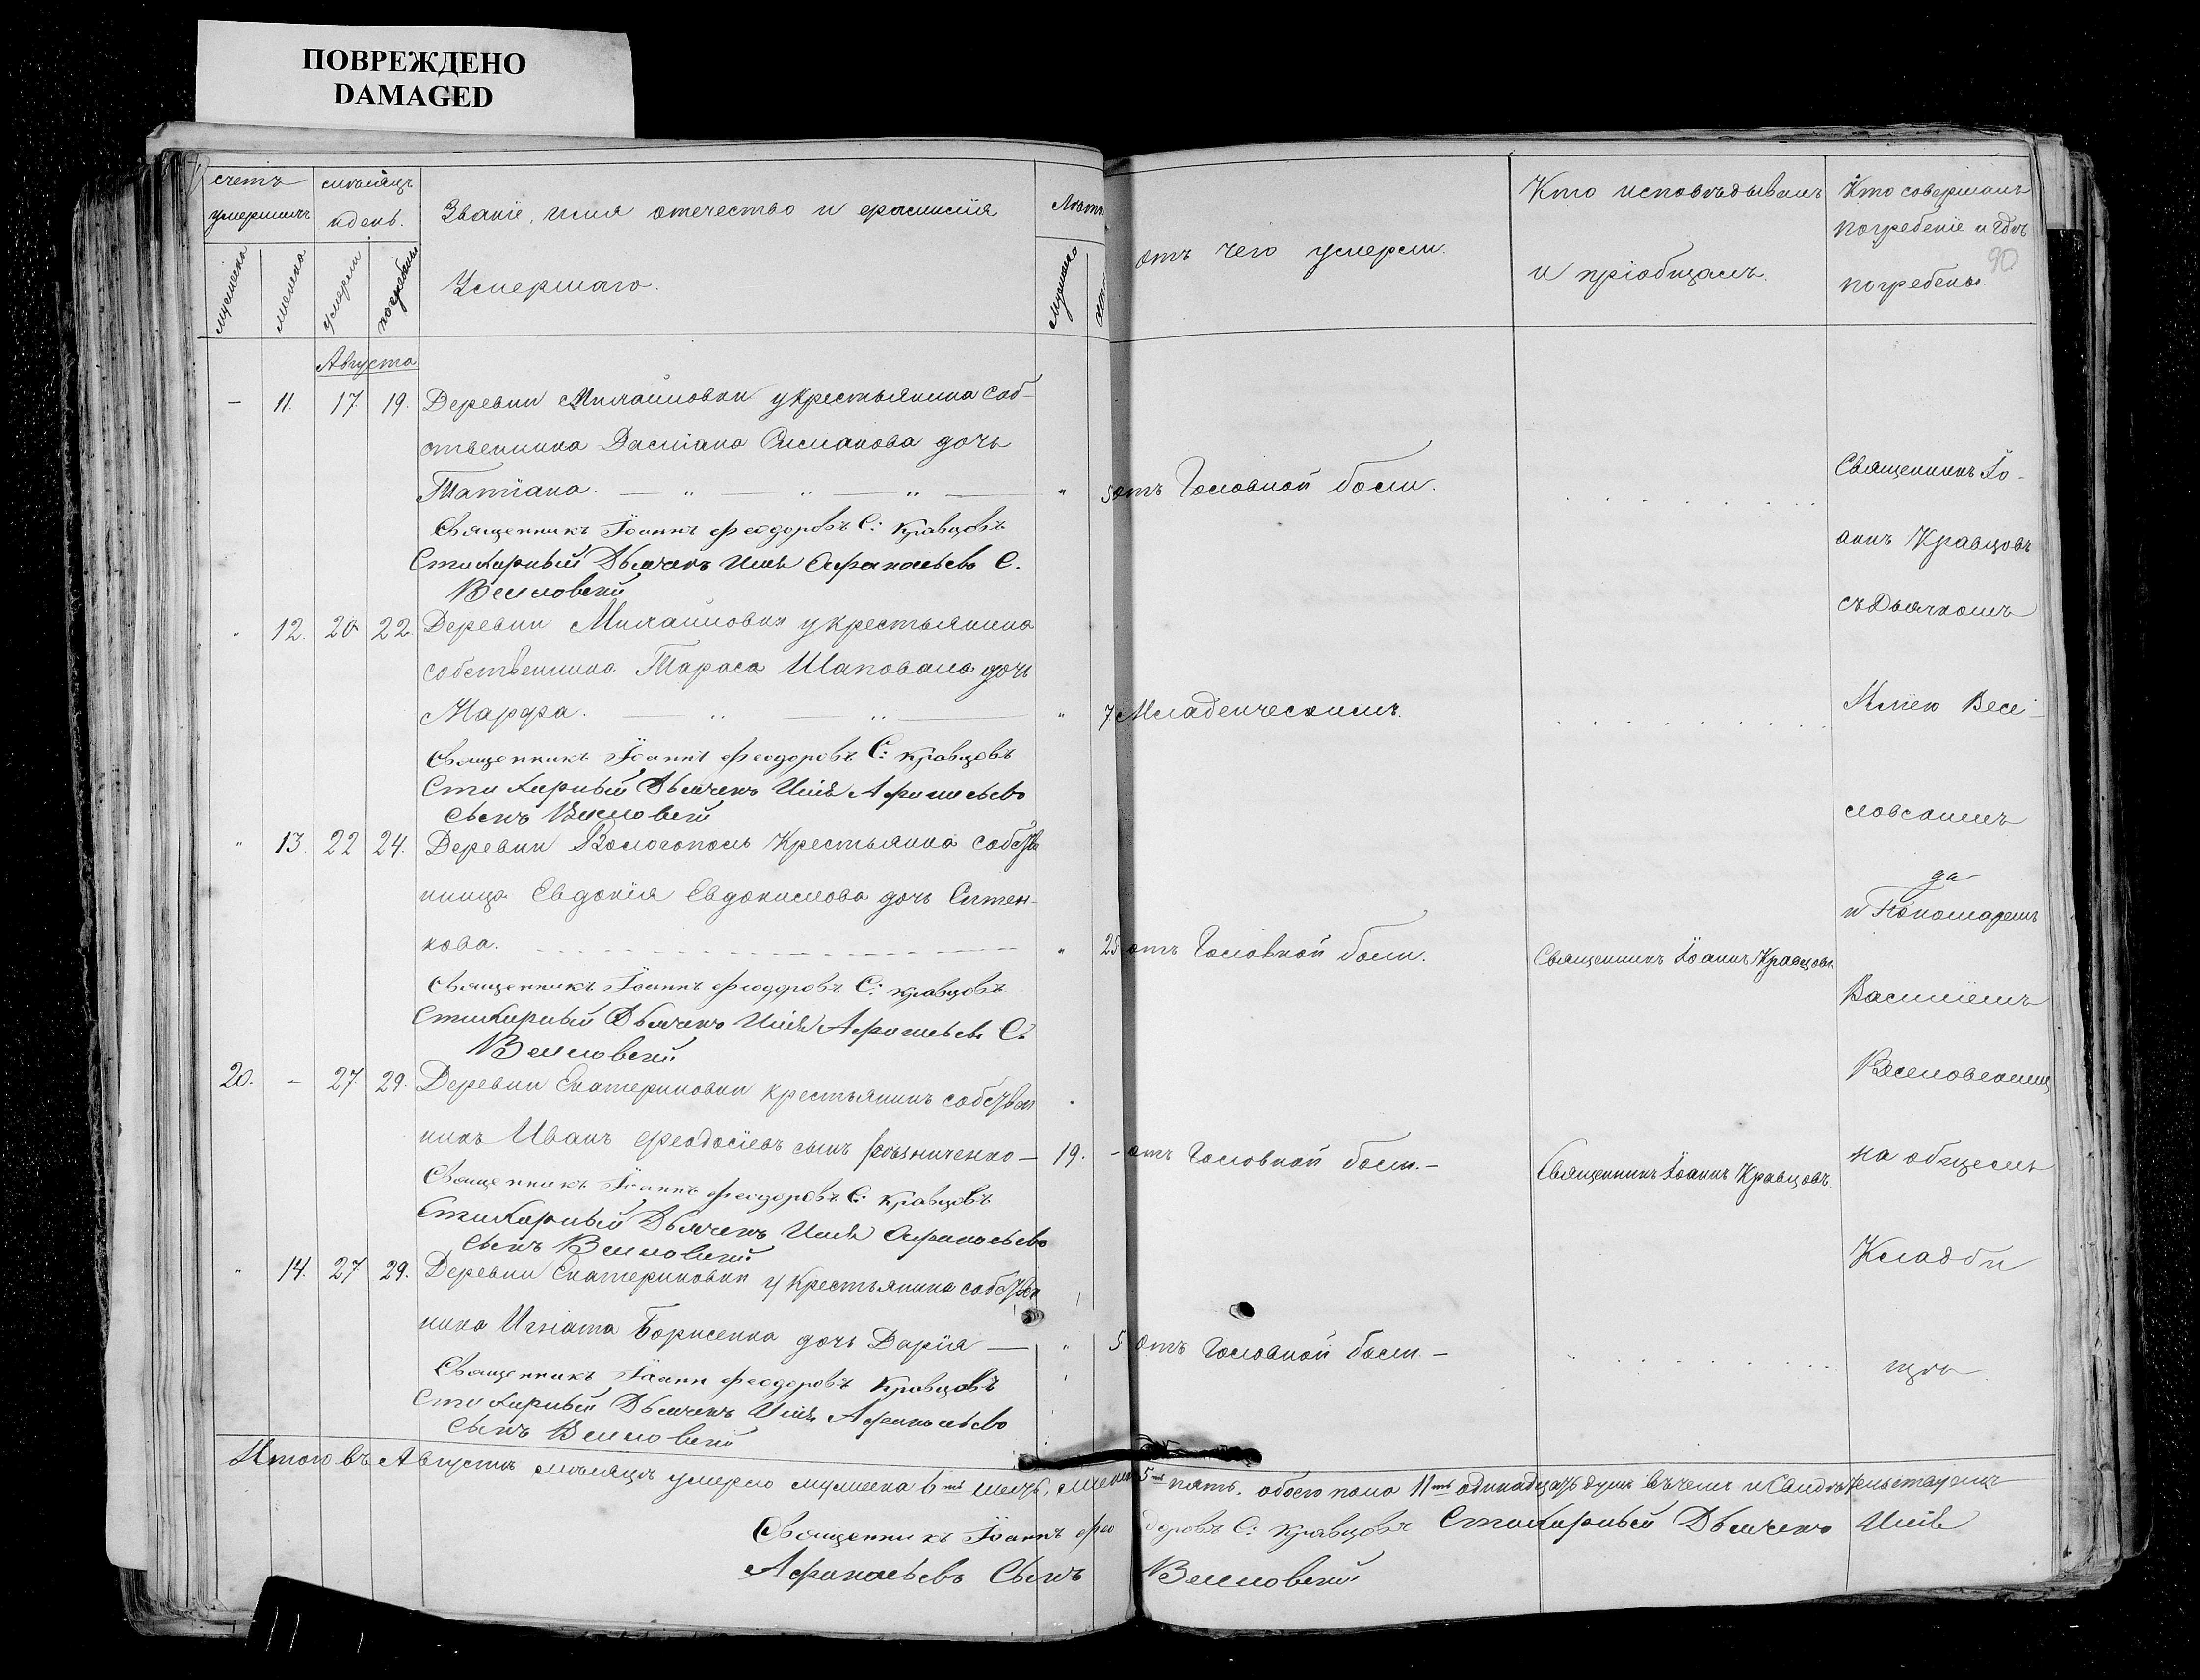 ПОВРЕЖДЕНО
DAMAGED
счетъ умершихъ
мѣсяцъ и день.
мужеска
женска
умерли
погребены
Званіе, имя отечество и фамилія
Умершаго.
Лѣта
Мужеска
отъ чего умерли.
Кто исповѣдывалъ
и пріобщалъ.
Кто совершалъ
погребеніе и гдѣ
погребены.
90
Августа
– 11. 17. 19. Деревни Михайловки у крестьянина соб-
ственника Даміана дочь
Татіана. " 5 отъ Головной боли.
Священникъ Іоаннъ Феодоровъ С: Кравцовъ
Стихарный Дьячекъ Илія Афанасьевъ С.
Веселовскій
" 12. 20 22. Деревни Михайловки у крестьянина
собственника Тараса Шаповала дочь
Марфа. " 7 Младенческимъ.
Священникъ Іоаннъ Феодоровъ С: Кравцовъ
Стихарный Дьячекъ Илія Афанасьевъ
Сынъ Веселовскій
" 13. 22 24. Деревни крестьянка собств
нница Евдокія Евдокимова дочь
кова. " 25 отъ Головной боли. Священникъ Іоаннъ Кравцовъ
Священникъ Іоаннъ Феодоровъ С: Кравцовъ
Стихарный Дьячекъ Илія Афанасьевъ Съ
Веселовскій
20. – 27. 29. Деревни Екатериновки крестьянинъ собствен
никъ Иванъ Феодосіевъ сынъ – 19. - отъ Головной боли. – Священникъ Іоаннъ Кравцовъ
Священникъ Іоаннъ Феодоровъ С: Кравцовъ
Стихарный Дьячекъ Илія Афанасьевъ
Сынъ Веселовскій
" 14. 27 29. Деревни Екатериновки у крестьянина собствен
ника Игната Борисенка дочь Дарія – " 5 отъ Головной боли. –
Священникъ Іоаннъ Феодоровъ Кравцовъ
Стихарный Дьячекъ Илія Афанасьевъ
Сынъ Веселовскій
Священникъ Іо-
аннъ Кравцовъ
съ Дьячкомъ
Иліею Весе-
ловскимъ
да
и Пономаремъ
Василіемъ
Веселовскимъ
на общемъ
Кладби
щѣ
Итого въ Августѣ мѣсяцѣ умерло мужеска 6ть шесть, женска 5ть пять. обоего пола 11ть одинадцать душъ въ чемъ и Свидѣтельствуемъ
Священникъ Іоаннъ Феодоровъ С: Кравцовъ Стихарный Дьячекъ Илія
Афанасьевъ Сынъ Веселовскій